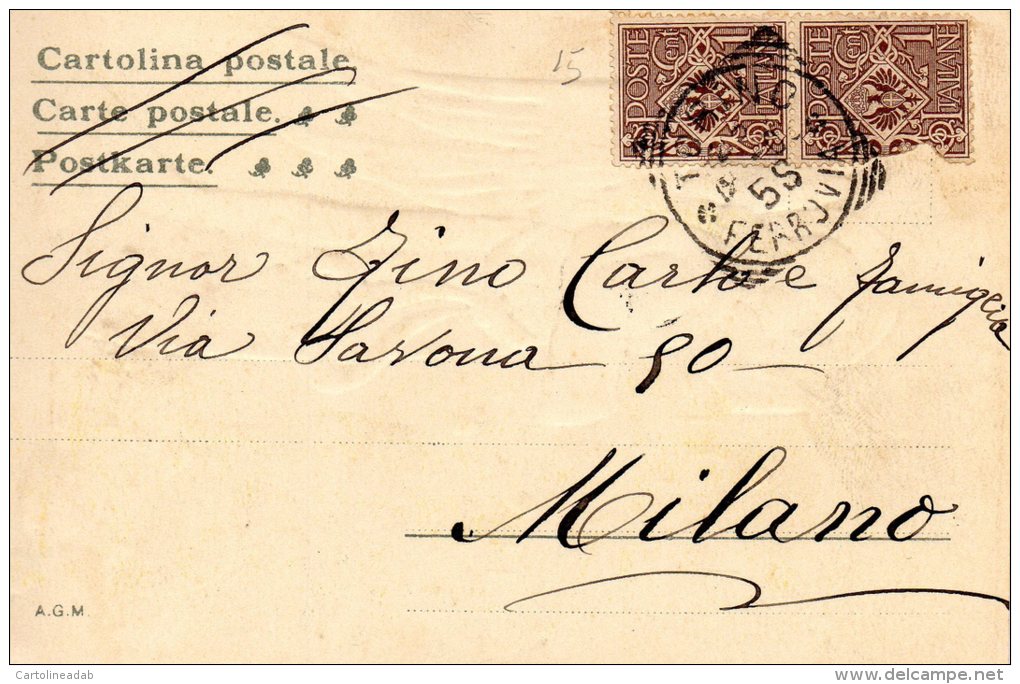 Cartolina postale
Carte postale.
Postkarte.
15
POSTE ITALIANE Cmi 1
POSTE ITALIANE Cmi 1
FERROVIA
5S
Signor Gino Carlo e famiglia
Via Savona 90
Milano
A.G.M.
Cartolineadab
delcampe.net